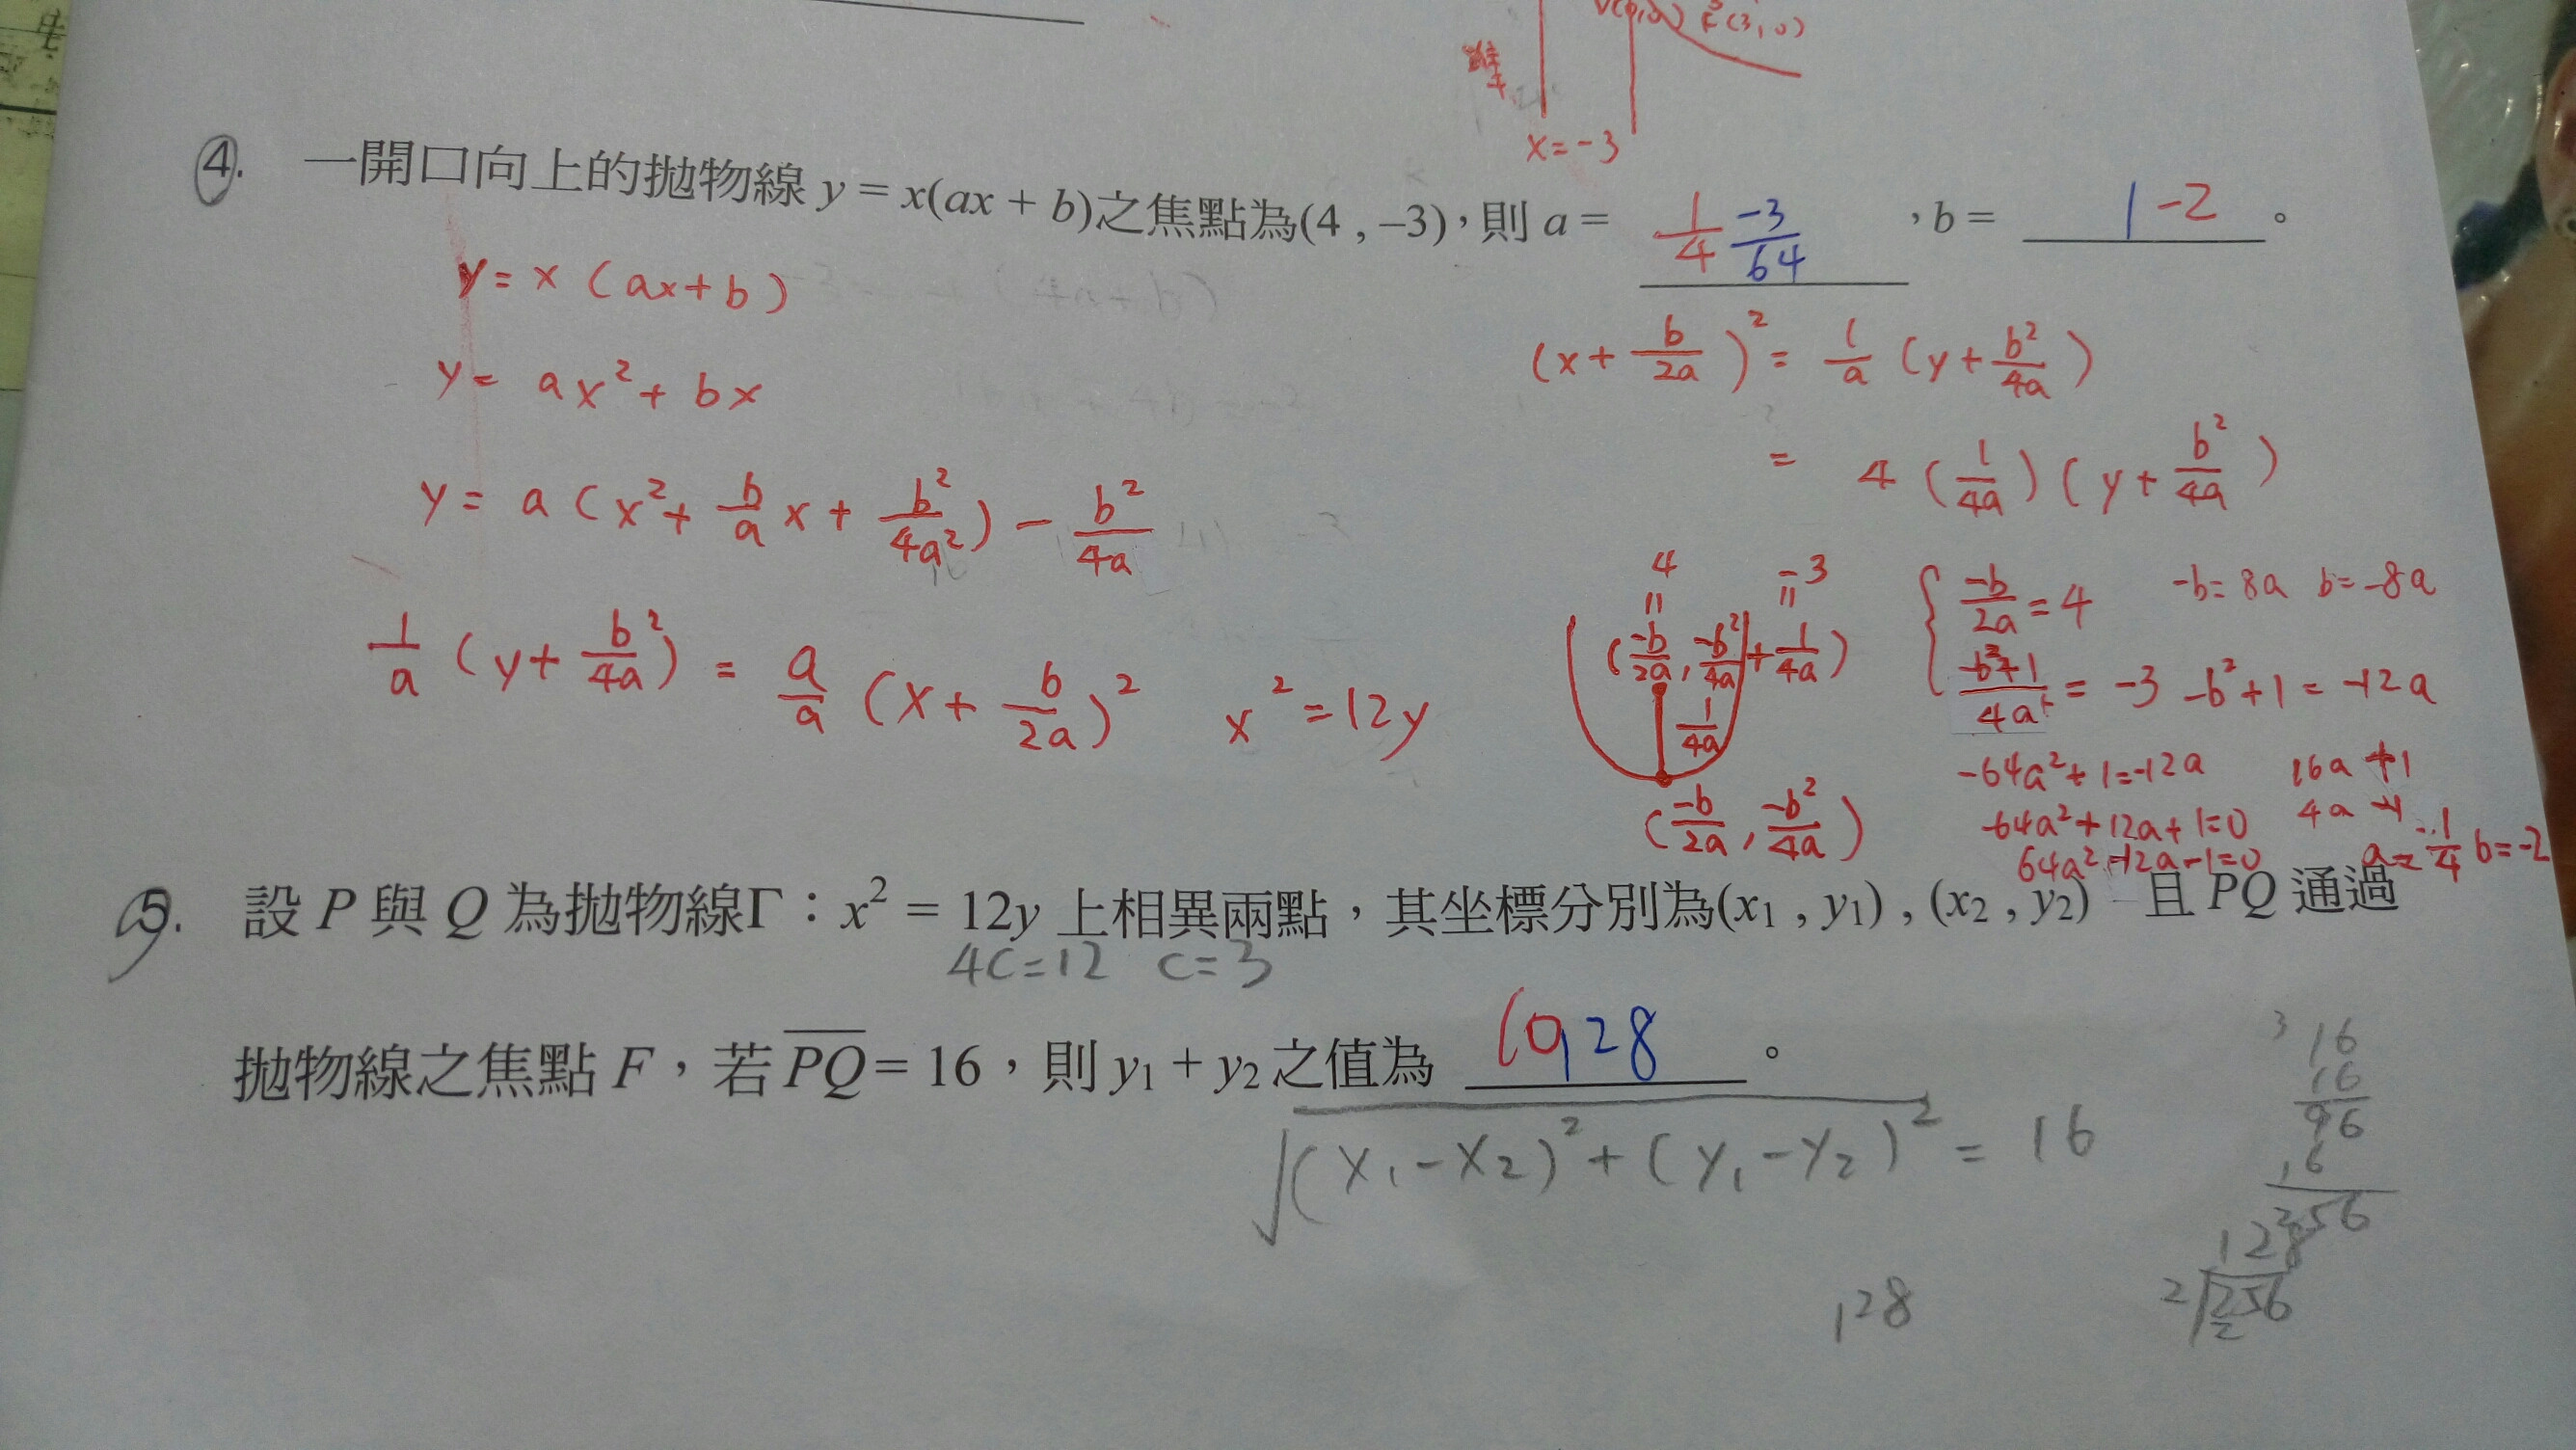 V(0,0) F(3,0)
準
x=-3
4. 一開口向上的拋物線 y = x(ax + b)之焦點為(4 , –3),則 a = 1/4 -3/64 ,b = 1 -2 。
y = x (ax+b)
y = ax² + bx
y = a (x² + b/a x + b²/4a²) - b²/4a
1/a (y + b²/4a) = a/a (x + b/2a)² x² = 12y
(x + b/2a)² = 1/a (y + b²/4a)
= 4 (1/4a) (y + b²/4a)
4 -3
= =
(-b/2a, -b²/4a + 1/4a)
1/4a
(-b/2a, -b²/4a)
{ -b/2a = 4 -b = 8a b = -8a
-b²+1/4a = -3 -b²+1 = -12a
-64a²+1=-12a 16a +1
-64a²+12a+1=0 4a -1
64a²-12a-1=0 a= 1/4 b=-2
5. 設 P 與 Q 為拋物線Γ:x² = 12y 上相異兩點,其坐標分別為(x₁ , y₁) , (x₂ , y₂) 且 PQ 通過
4C=12 C=3
拋物線之焦點 F,若 PQ = 16,則 y₁ + y₂ 之值為 10 128 。
√(x₁-x₂)²+(y₁-y₂)² = 16
3 16
16
96
16
256
128
2 256
2
128